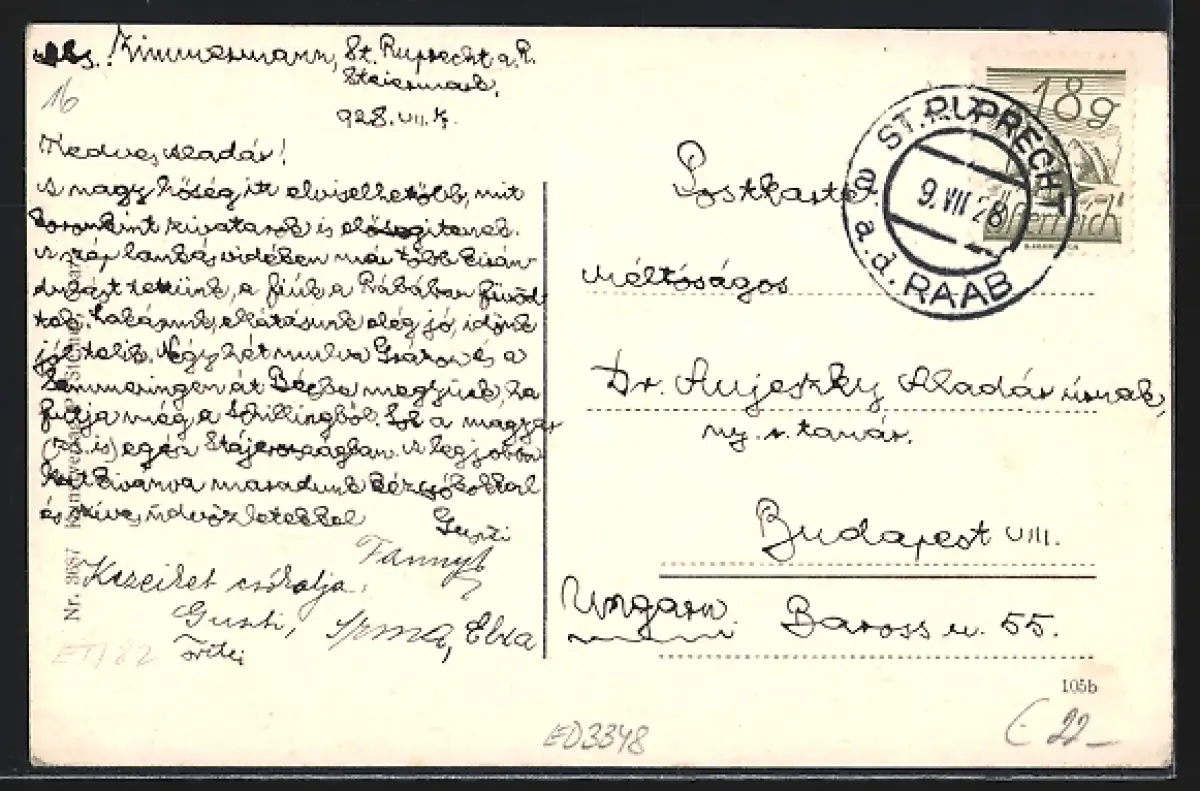 Abs. Zimmermann, St. Ruprecht a. R.
Steiermark.
16
928. VII. 7.
Kedves Aladár!
A nagy hőség itt elviselhetőbb, mit
koronkint zivatarok is elősegitenek.
A szép lankás vidéken már több kirán-
dulást tettünk, a fiúk a Rábában füröd-
tek. Lakásunk, ellátásunk elég jó, időnk
jól telik. Négy hét mulva Grazon és a
Semmeringen át Bécsbe megyünk, ha
futja még a Schillingből. Sok a magyar
(zs. is) egész Stájerországban. A legjobba-
kat kivánva maradunk kézcsókokkal
és szives üdvözletekkel Guszti
Fanny
Kezeiket csókolja:
Guszti, Irma, Elza
Nr. 3687
ED3348
Postkarte
18g
Österreich
ST. RUPRECHT
a.d. RAAB
9. VII 28
Méltóságos
Dr. Aujeszky Aladár úrnak,
ny. r. tanár.
Budapest VIII.
Ungarn. Baross u. 55.
105b
22-